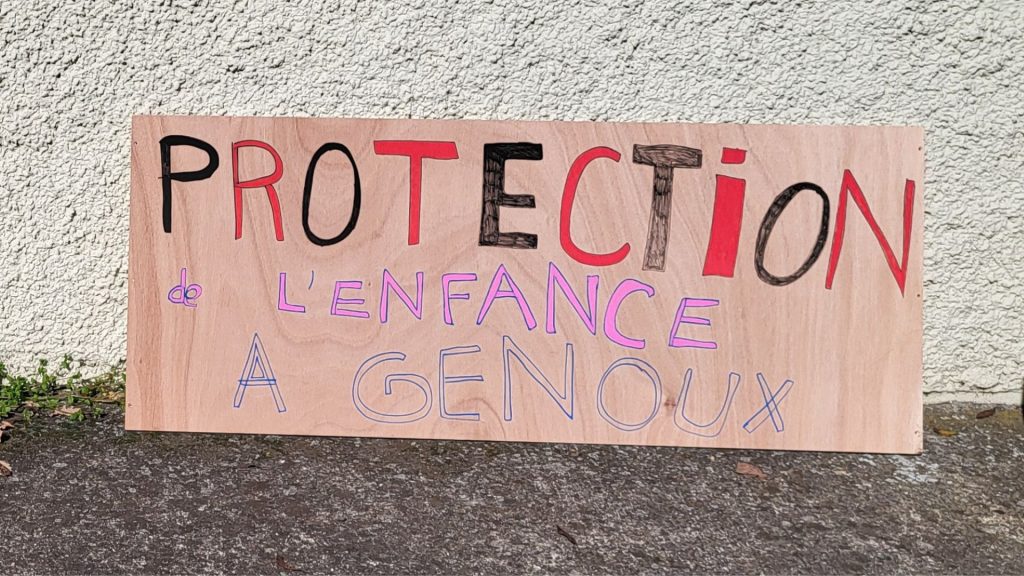 PROTECTiON
de L'ENFANCE
A GENOUX